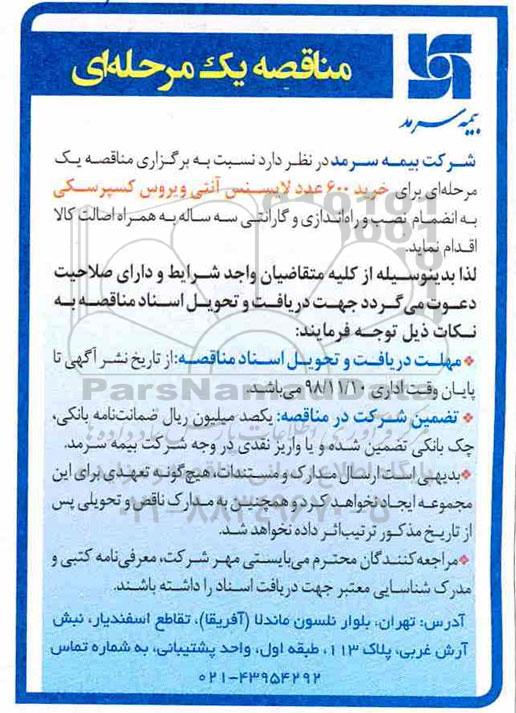 مناقصه یک مرحله‌ای
بیمه سرمد
شرکت بیمه سرمد در نظر دارد نسبت به برگزاری مناقصه یک
مرحله‌ای برای خرید ۶۰۰ عدد لایسنس آنتی ویروس کسپرسکی
به انضمام نصب و راه‌اندازی و گارانتی سه ساله به همراه اصالت کالا
اقدام نماید.
لذا بدینوسیله از کلیه متقاضیان واجد شرایط و دارای صلاحیت
دعوت می‌گردد جهت دریافت و تحویل اسناد مناقصه به
نکات ذیل توجه فرمایند:
مهلت دریافت و تحویل اسناد مناقصه: از تاریخ نشر آگهی تا
پایان وقت اداری ۹۸/۱۱/۱۰ می‌باشد.
ParsNamadData
تضمین شرکت در مناقصه: یکصد میلیون ریال ضمانت‌نامه بانکی،
چک بانکی تضمین شده و یا واریز نقدی در وجه شرکت بیمه سرمد.
بدیهی است ارسال مدارک و مستندات، هیچ‌گونه تعهدی برای این
مجموعه ایجاد نخواهد کرد و همچنین به مدارک ناقص و تحویلی پس
از تاریخ مذکور ترتیب‌اثر داده نخواهد شد.
۰۲۱-۸۸۳۴۹۶۷۰-۵
مراجعه‌کنندگان محترم می‌بایستی مهر شرکت، معرفی‌نامه کتبی و
مدرک شناسایی معتبر جهت دریافت اسناد را داشته باشند.
آدرس: تهران، بلوار نلسون ماندلا (آفریقا)، تقاطع اسفندیار، نبش
آرش غربی، پلاک ۱۱۳، طبقه اول، واحد پشتیبانی، به شماره تماس
۰۲۱-۴۳۹۵۴۲۹۲